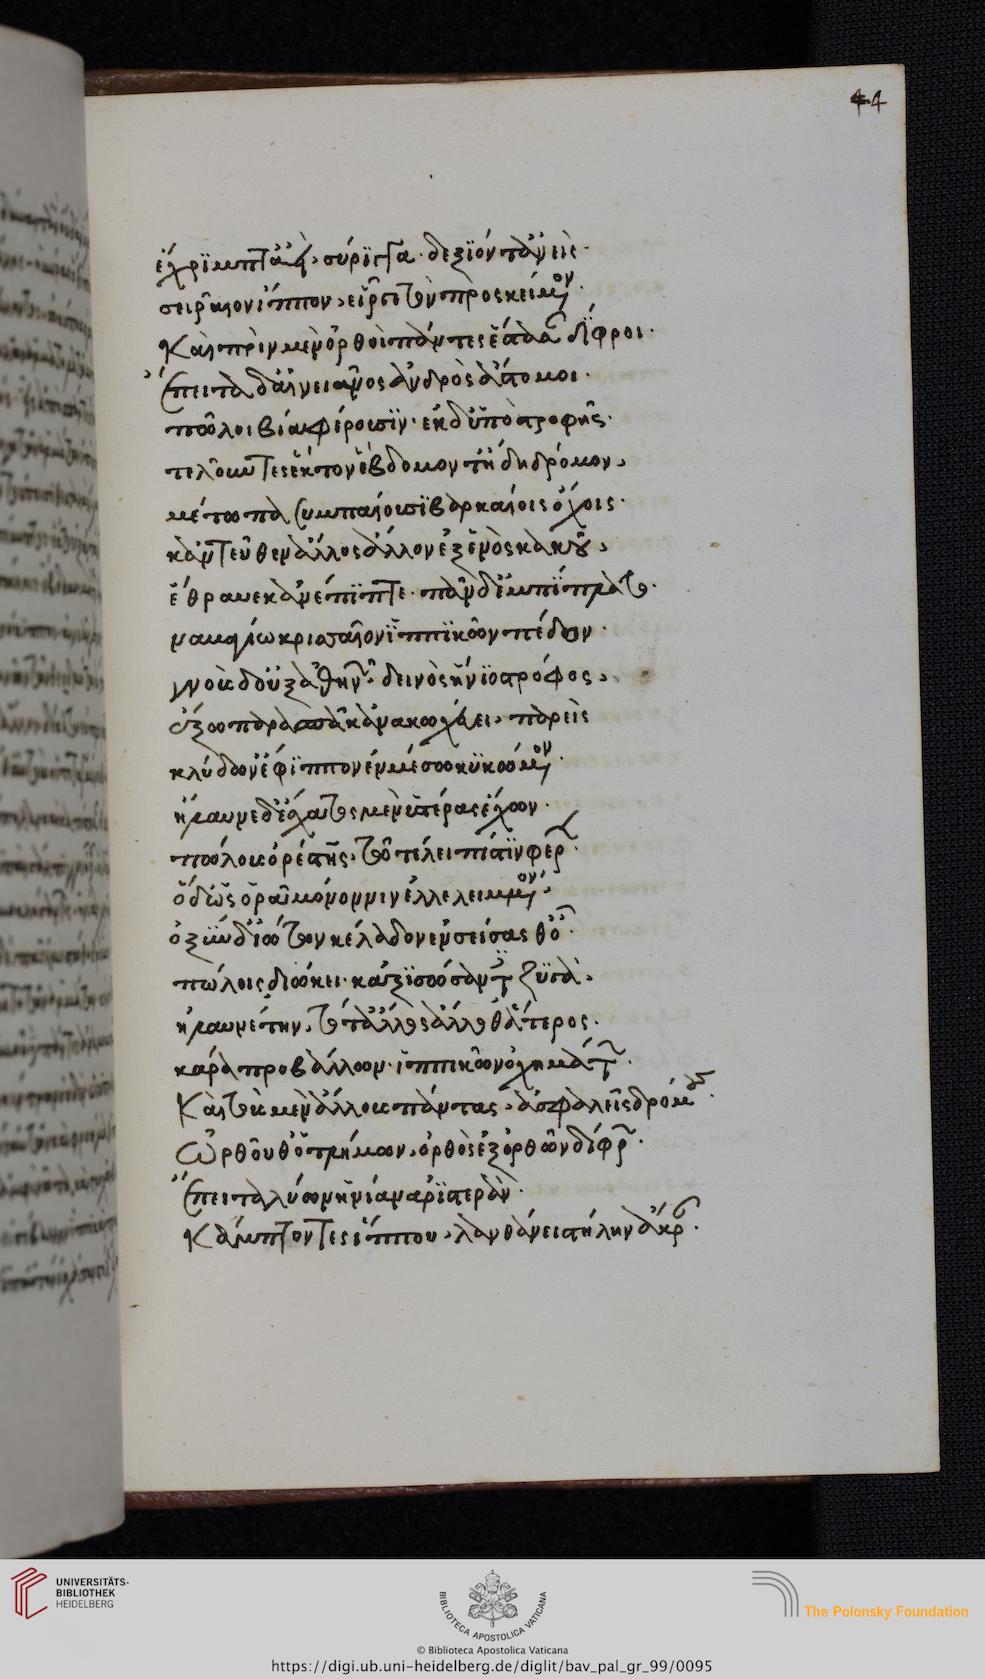 44
ἔχριμπτ' ἀεὶ σύριγγα· δεξιὸν τ' ἀνεὶς
σειραῖον ἵππον, εἶργε τὸν προσκείμενον·
Καὶ πρὶν μὲν ὀρθοὶ πάντες ἕστασαν δίφροι·
Ἔπειτα δ' αἰνειᾶνος ἀνδρὸς ἄστομοι·
πῶλοι βίᾳ φέρουσιν· ἐκ δ' ὑποστροφῆς·
τελοῦντες ἕκτον ἕβδομον τ' ἤδη δρόμον,
μέτωπα συμπαίουσι βαρκαίοις ὄχοις·
κἀντεῦθεν ἄλλος ἄλλον ἐξ ἑνὸς κακοῦ,
ἔθραυε κἀνέπιπτε· πᾶν δ' ἐμπίπρατο·
ναυαγίων κρισαῖον ἱππικῶν πέδον·
γνοὺς δ' οὑξ ἀθηνῶν δεινὸς ἡνιοστρόφος,
ἔξω παρασπᾷ κἀνακωχεύει, παρεὶς
κλύδων' ἔφιππον ἐν μέσῳ κυκώμενον·
ἤλαυνε δ' ἔσχατος μὲν ὑστέρας ἔχων·
πώλους ὀρέστης, τῷ τέλει πίστιν φέρων·
ὁ δ' ὡς ὁρᾷ μόνον νιν ἐλλελειμμένον,
ὀξὺν δι' ὤτων κέλαδον ἐνσείσας θοαῖς·
πώλοις διώκει· κἀξισώσαντε ζυγὰ,
ἠλαυνέτην, τότ' ἄλλος ἄλλοθ' ἅτερος·
κάρα προβάλλων· ἱππικῶν ὀχημάτων·
Καὶ τοὺς μὲν ἄλλους πάντας, ἀσφαλεῖς δρόμους·
Ὠρθοῦθ' ὁ τλήμων, ὀρθὸς ἐξ ὀρθῶν δίφρων·
Ἔπειτα λύων ἡνίαν ἀριστερὰν·
Κάμπτοντες ἵππου, λανθάνει στήλην ἄκραν·
UNIVERSITÄTS-
BIBLIOTHEK
HEIDELBERG
BIBLIOTECA APOSTOLICA VATICANA
The Polonsky Foundation
© Biblioteca Apostolica Vaticana
https://digi.ub.uni-heidelberg.de/diglit/bav_pal_gr_99/0095